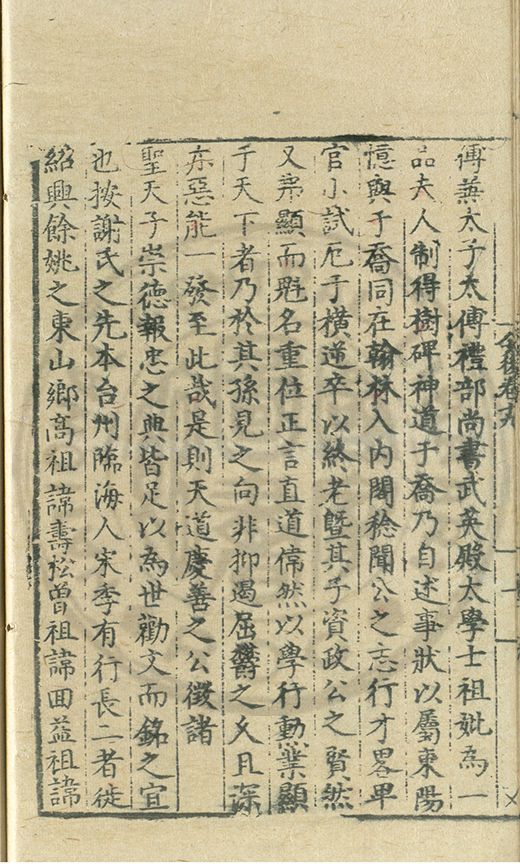 傅兼太子太傅禮部尚書武英殿大學士祖妣為一
品夫人制得樹碑神道于喬乃自述事狀以屬東陽
憶與于喬同在翰林入内閣稔聞公之志行才畧毕
官小試厄于橫逆卒以終老暨其子資政公之賢然
又弗顯而魁名重位正言直道偉然以學行動業顯
于天下者乃於其孫見之向非抑遏屈欝之久且深
亦惡能一發至此哉是則天道慶善之公徵諸
聖天子崇德報忠之典皆足以為世勸文而銘之宜
也按謝氏之先本台州臨海人宋季有行長二者徙
紹興餘姚之東山鄉高祖諱壽松曾祖諱囬益祖諱